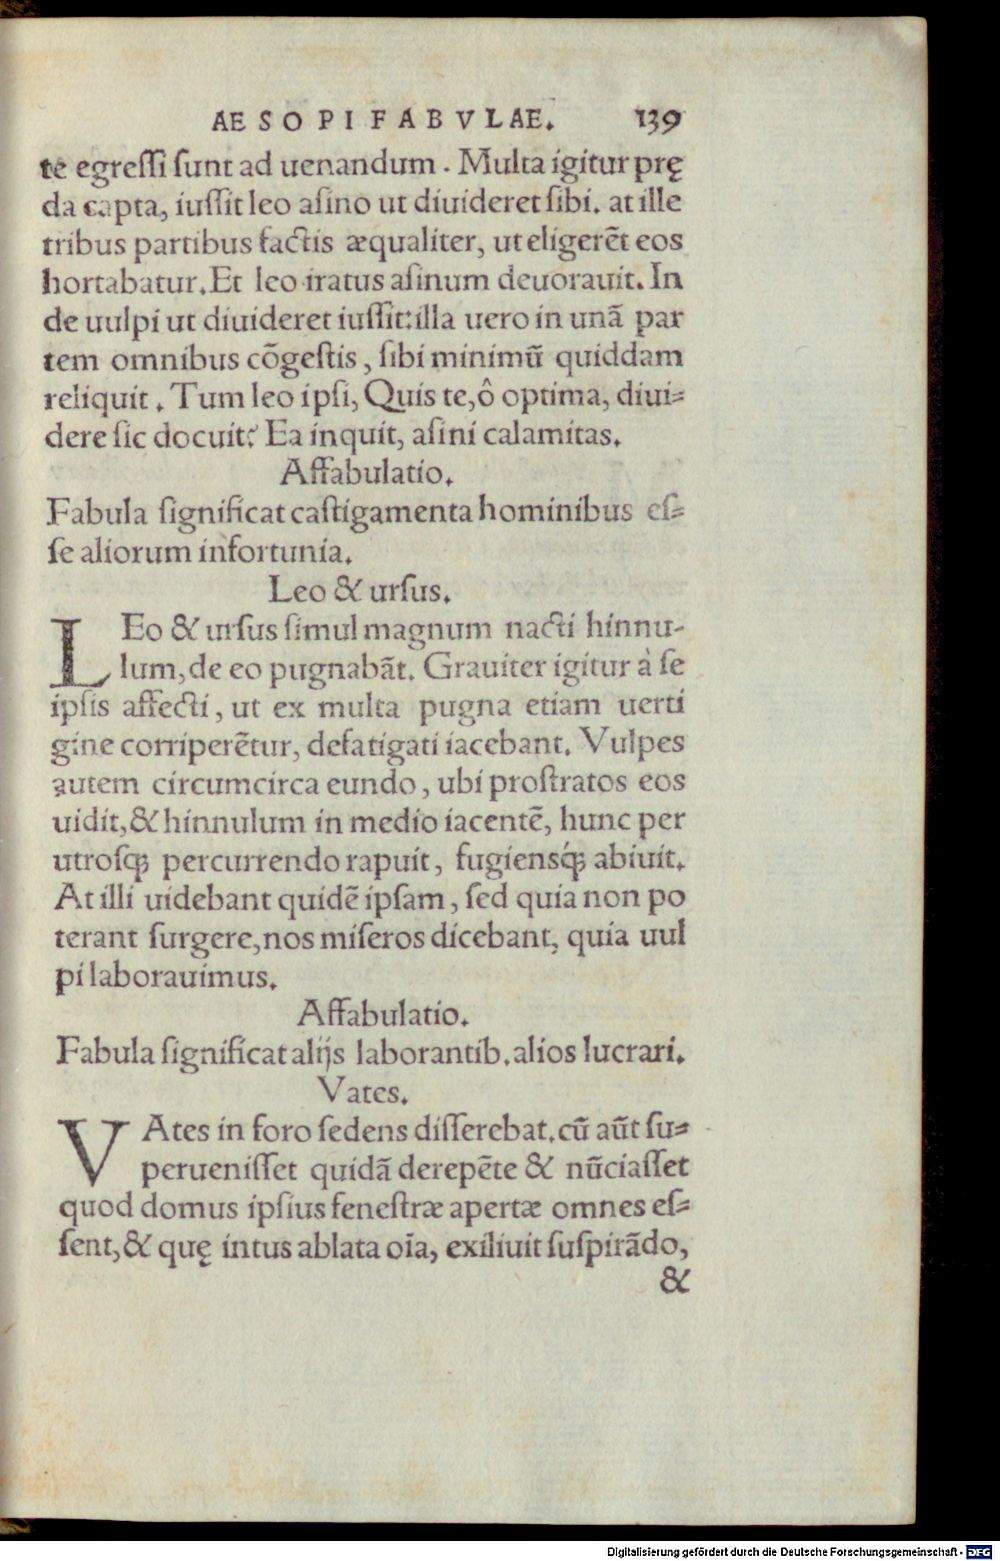 AESOPI FABVLAE. 139
te egreſſi ſunt ad uenandum . Multa igitur prę
da capta, iuſſit leo aſino ut diuideret ſibi. at ille
tribus partibus factis æqualiter, ut eligerēt eos
hortabatur. Et leo iratus aſinum deuorauit. In
de uulpi ut diuideret iuſſit: illa uero in unā par
tem omnibus cōgeſtis, ſibi minimū quiddam
reliquit. Tum leo ipſi, Quis te, ô optima, diui=
dere ſic docuit? Ea inquit, aſini calamitas.
Affabulatio.
Fabula ſignificat caſtigamenta hominibus eſ=
ſe aliorum infortunia.
Leo & urſus.
LEo & urſus ſimul magnum nacti hinnu-
lum, de eo pugnabāt. Grauiter igitur à ſe
ipſis affecti, ut ex multa pugna etiam uerti
gine corriperētur, defatigati iacebant. Vulpes
autem circumcirca eundo, ubi proſtratos eos
uidit, & hinnulum in medio iacentē, hunc per
utroſqꝫ percurrendo rapuit, fugiensq́ꝫ abiuit.
At illi uidebant quidē ipſam, ſed quia non po
terant ſurgere, nos miſeros dicebant, quia uul
pi laborauimus.
Affabulatio.
Fabula ſignificat alijs laborantib. alios lucrari.
Vates.
VAtes in foro ſedens diſſerebat. cū aūt ſu=
perueniſſet quidā derepēte & nūciaſſet
quod domus ipſius feneſtræ apertæ omnes eſ=
ſent, & quę intus ablata oīa, exiliuit ſuſpirādo,
&
Digitalisierung gefördert durch die Deutsche Forschungsgemeinschaft - DFG